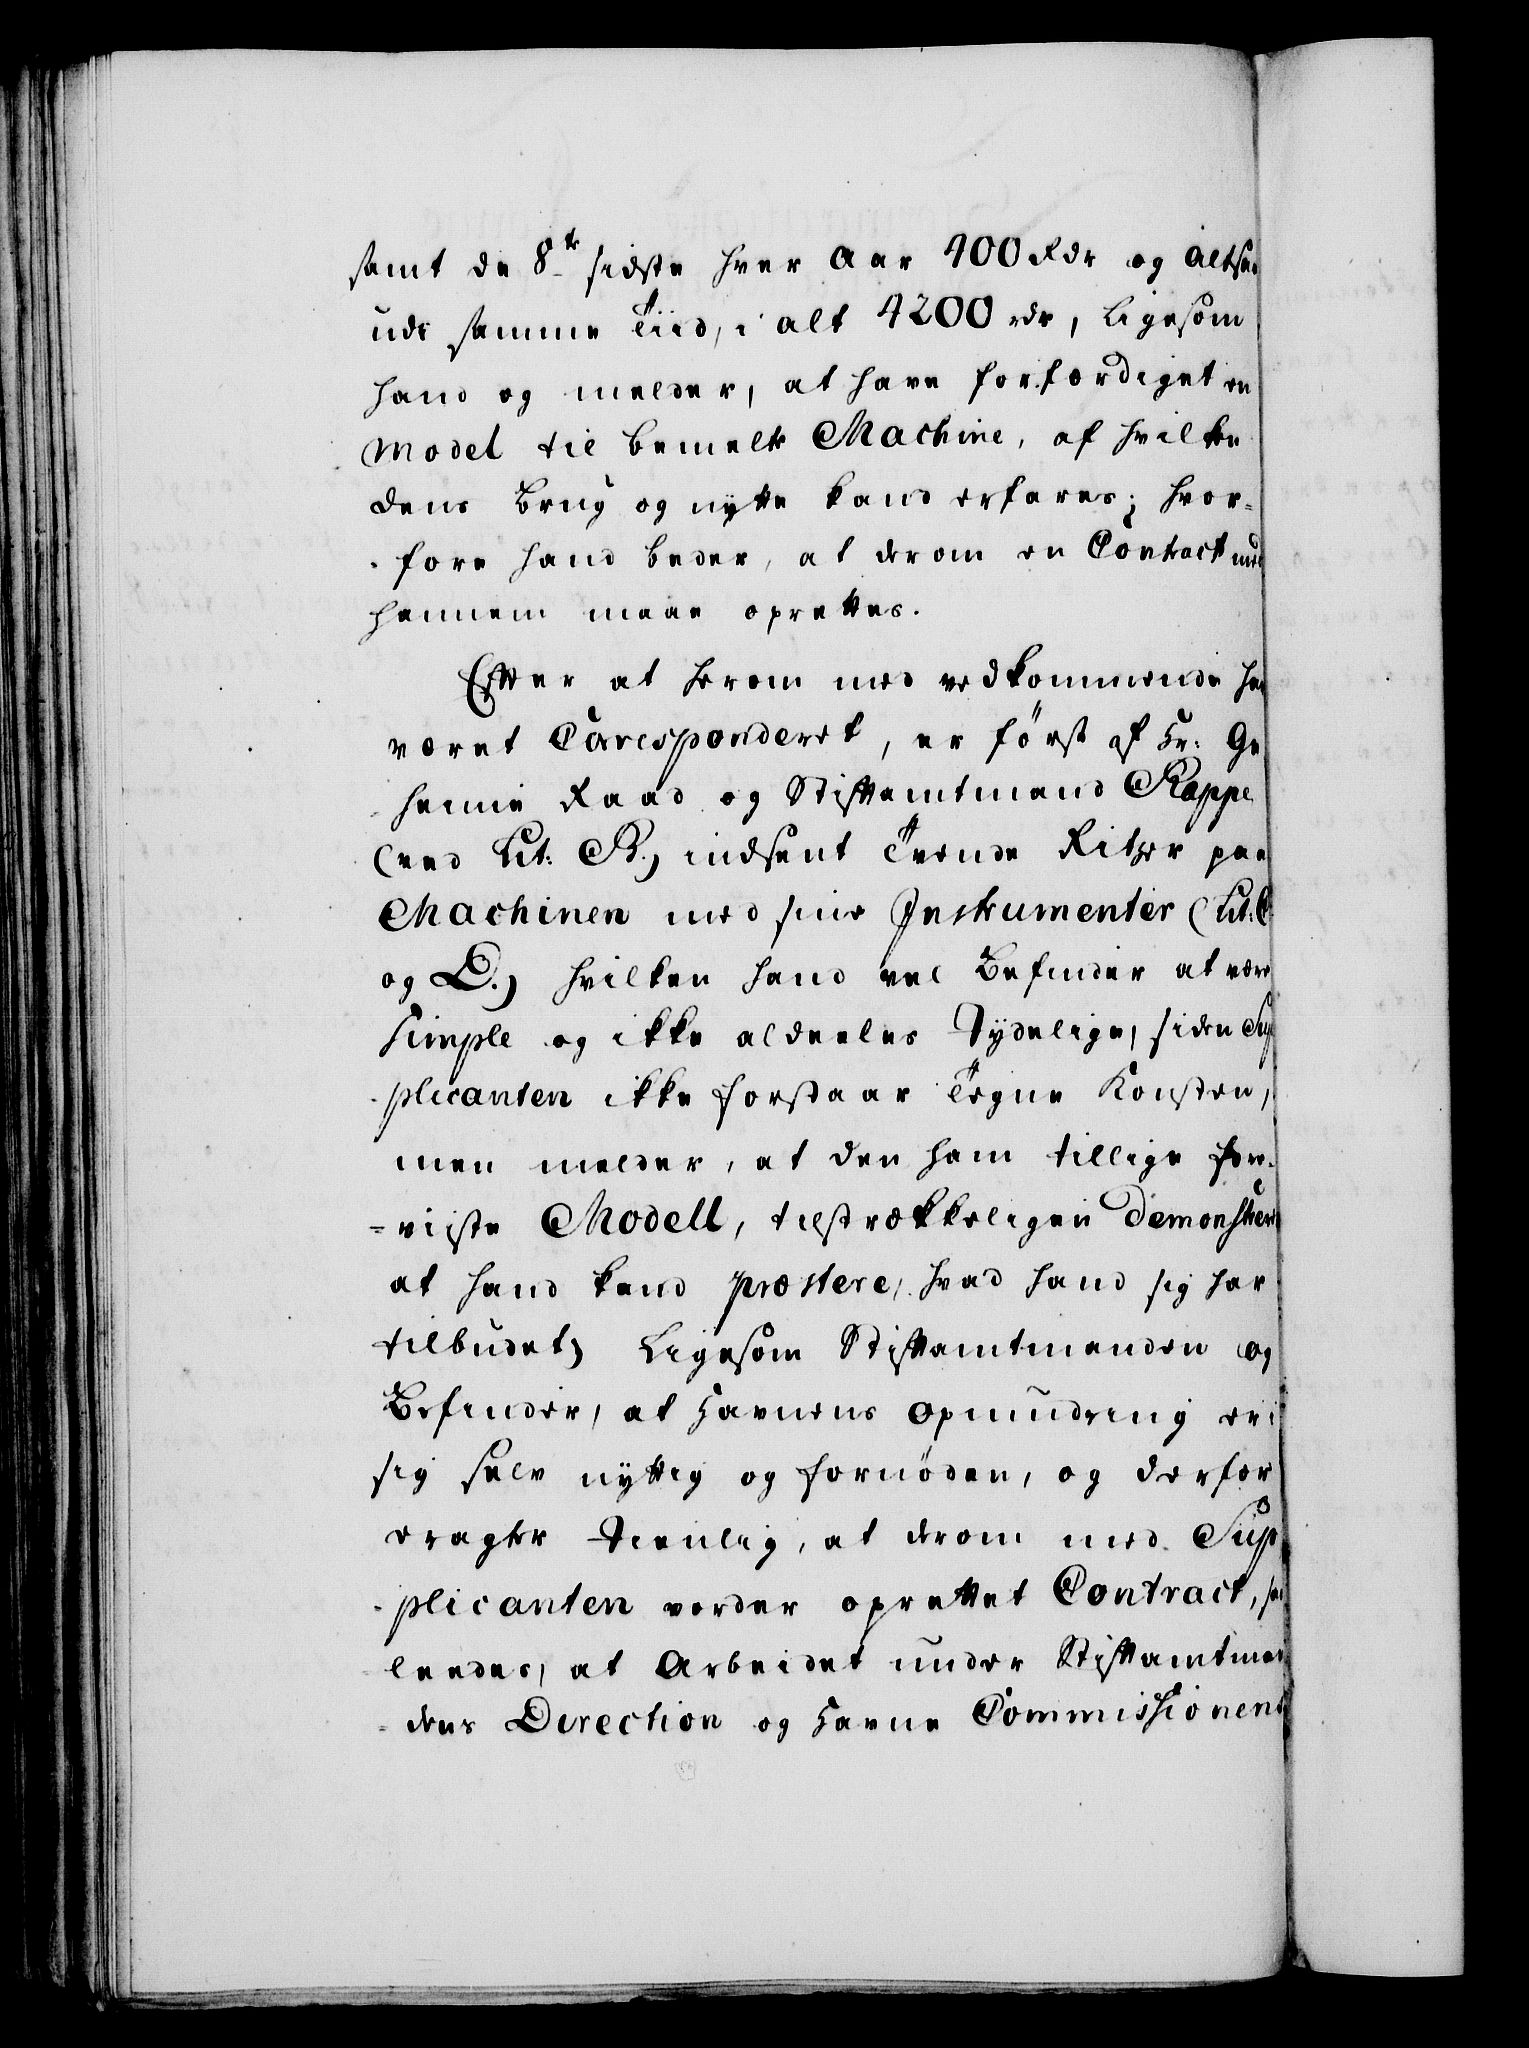 samt de 8te sidste hver Aar 400 Rdr og Altsaa
udi samme Tiid, i alt 4200 rdr, ligesom
hand og melder, at have forfærdiget en
Model til bemelte Machine, af hvilken
dens Brug og nytte kand erfares; hvor-
fore hand beder, at derom en Contract med
hannem maae oprettes.
Efter at herom med vedkommende har
været Coresponderet, er först af Hr: Ge
heime Raad og Stiftamtmand Rappe
(ved Lit: B.) indsent Tvende Ritzer paa
Machinen med sine Instrumenter (Lit: C
og D.) hvilken hand vel Befinder at være
simple og ikke aldeeles Tydelige, siden Sup
plicanten ikke forstaar Tegne Konsten,
men melder, at den ham tillige for-
-viiste Modell, tilstrækkeligen demonstrer
at hand kand præstere, hvad hand sig har
tilbudet; Ligesom Stiftamtmanden og
Befinder, at Havnens Opmudring er i
sig selv nyttig og fornöden, og derfor
eragter tienlig, at derom med Sup
plicanten vorder oprettet Contract, saa
leedes, at Arbeidet under Stiftamtman
dens Direction og Havne Commissionens